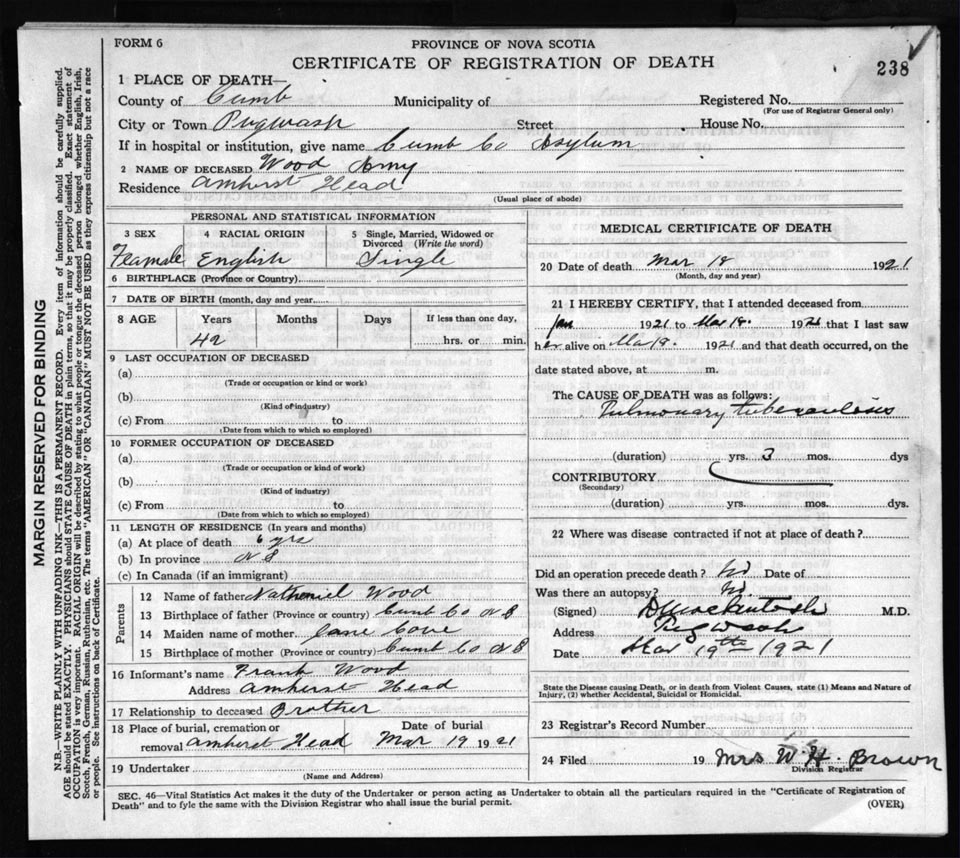 FORM 6
PROVINCE OF NOVA SCOTIA
CERTIFICATE OF REGISTRATION OF DEATH
238
1 PLACE OF DEATH—
County of Cumb Municipality of Registered No.
(For use of Registrar General only)
City or Town Pugwash Street House No.
If in hospital or institution, give name Cumb Co Asylum
2 NAME OF DECEASED Wood Amy
Residence Amherst Head
(Usual place of abode)
PERSONAL AND STATISTICAL INFORMATION
3 SEX 4 RACIAL ORIGIN 5 Single, Married, Widowed or
Divorced (Write the word)
Feamale English Single
6 BIRTHPLACE (Province or Country)
7 DATE OF BIRTH (month, day and year
8 AGE Years Months Days If less than one day,
42 hrs. or min.
9 LAST OCCUPATION OF DECEASED
(a)
(Trade or occupation or kind or work)
(b)
(Kind of industry)
(c) From to
(Date from which to which so employed)
10 FORMER OCCUPATION OF DECEASED
(a)
(Trade or occupation or kind or work)
(b)
(Kind of industry)
(c) From to
(Date from which to which so employed)
11 LENGTH OF RESIDENCE (In years and months)
(a) At place of death 6 yrs
(b) In province N S
(c) In Canada (if an immigrant)
Parents
12 Name of father Nathaniel Wood
13 Birthplace of father (Province or country) Cumb Co N S
14 Maiden name of mother Jane Cove
15 Birthplace of mother (Province or country) Cumb Co N S
16 Informant's name Frank Wood
Address Amherst Head
17 Relationship to deceased Brother
18 Place of burial, cremation or Date of burial
removal Amherst Head Mar 19 1921
19 Undertaker
(Name and Address)
MEDICAL CERTIFICATE OF DEATH
20 Date of death Mar 18 1921
(Month, day and year)
21 I HEREBY CERTIFY, that I attended deceased from
Jan 1921 to Mar 18. 1921 that I last saw
her alive on Ma 18. 1921 and that death occurred, on the
date stated above, at m.
The CAUSE OF DEATH was as follows:
Pulmonary tuberculosis
(duration) yrs. 3 mos. dys
CONTRIBUTORY
(Secondary)
(duration) yrs. mos. dys.
22 Where was disease contracted if not at place of death?
Did an operation precede death? No Date of
Was there an autopsy? No.
(Signed) D Mackintosh M.D.
Address Pugwash
Date Mar 19th 1921
State the Disease causing Death, or in death from Violent Causes, state (1) Means and Nature of
Injury, (2) whether Accidental, Suicidal or Homicidal.
23 Registrar's Record Number
24 Filed 19 Mrs W H Brown
Division Registrar
SEC. 46—Vital Statistics Act makes it the duty of the Undertaker or person acting as Undertaker to obtain all the particulars required in the "Certificate of Registration of
Death" and to fyle the same with the Division Registrar who shall issue the burial permit.
(OVER)
MARGIN RESERVED FOR BINDING
N.B.—WRITE PLAINLY WITH UNFADING INK—THIS IS A PERMANENT RECORD. Every item of information should be carefully supplied.
AGE should be stated EXACTLY. PHYSICIANS should STATE CAUSE OF DEATH in plain terms, so that it may be properly classified. Exact statement of
OCCUPATION is very important. RACIAL ORIGIN will be described by stating to what people or tongue the deceased person belonged whether English, Irish,
Scotch, French, German, Russian, Ruthenian, etc. The terms "AMERICAN" OR "CANADIAN" MUST NOT BE USED as they express citizenship but not a race
or people. See instructions on back of Certificate.